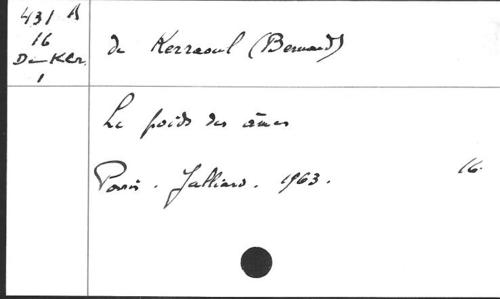 431 A
16
De Ker.
1
de Kerraoul (Bernard)
Le poids des âmes
Paris. Julliard. 1963.
16.